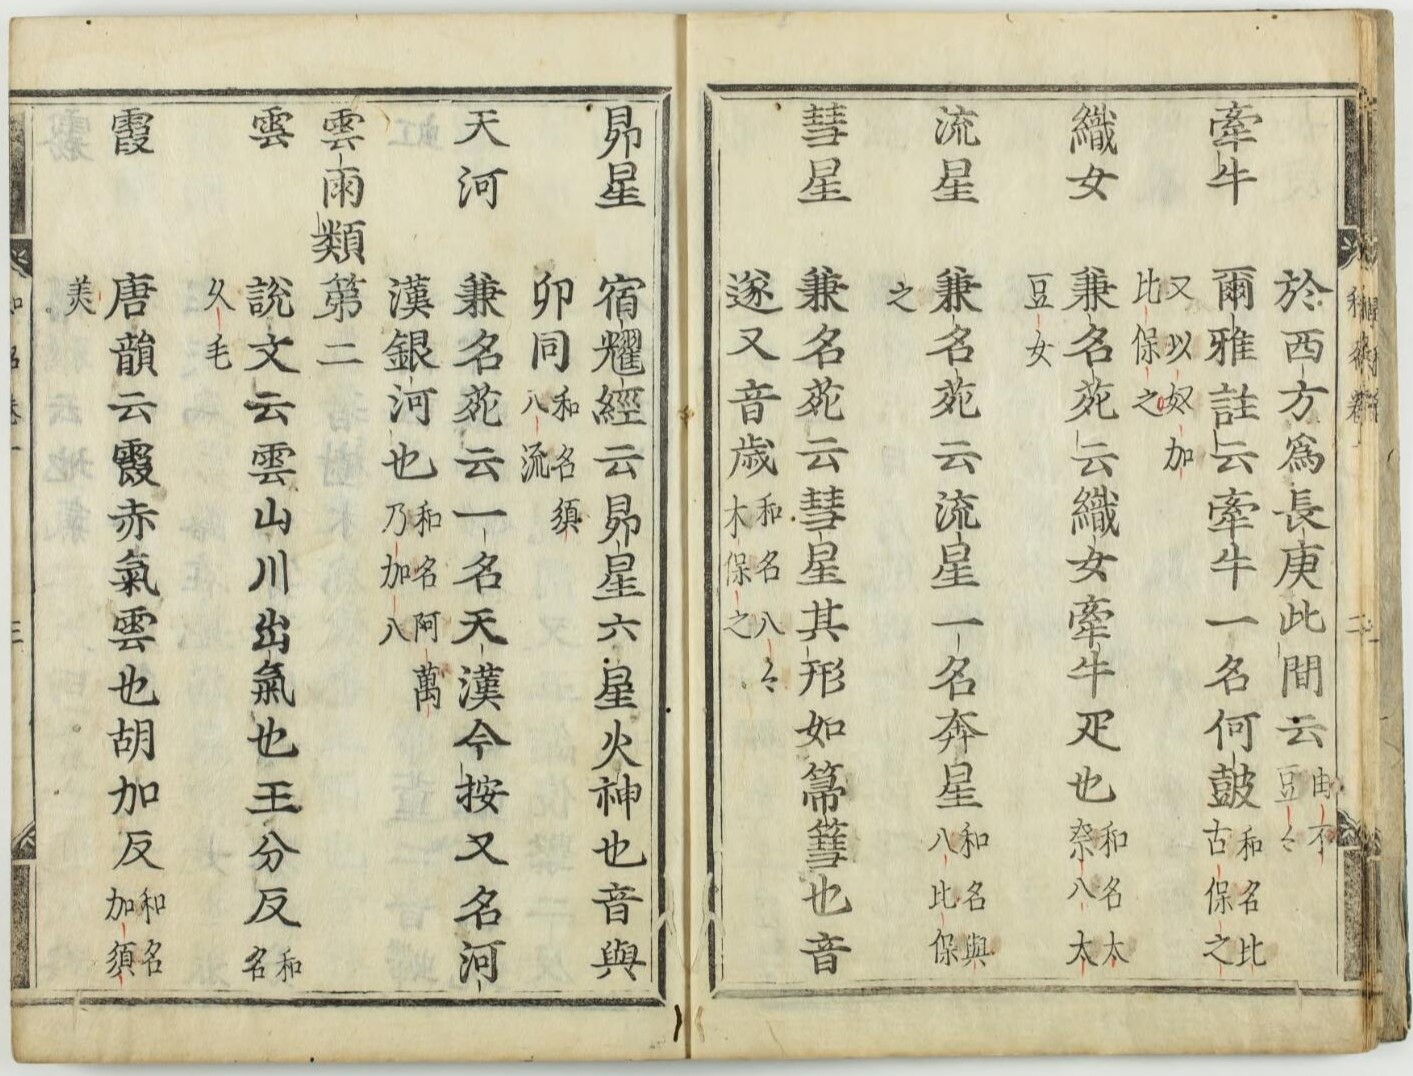 於西方爲長庚此間云由不豆〻
牽牛 爾雅註云牽牛一名何皷和名比古保之
又以奴加比保之
織女 兼名苑云織女牽牛疋也和名太奈八太
豆女
流星 兼名苑云流星一名奔星和名與八比保
之
彗星 兼名苑云彗星其形如箒篲也音
遂又音歳和名八〻木保之
昴星 宿耀經云昴星六星火神也音與
卯同和名須八流
天河 兼名苑云一名天漢今按又名河
漢銀河也和名阿萬乃加八
雲雨類第二
雲 說文云雲山川出氣也王分反和名
久毛
霞 唐韻云霞赤氣雲也胡加反和名加須
美